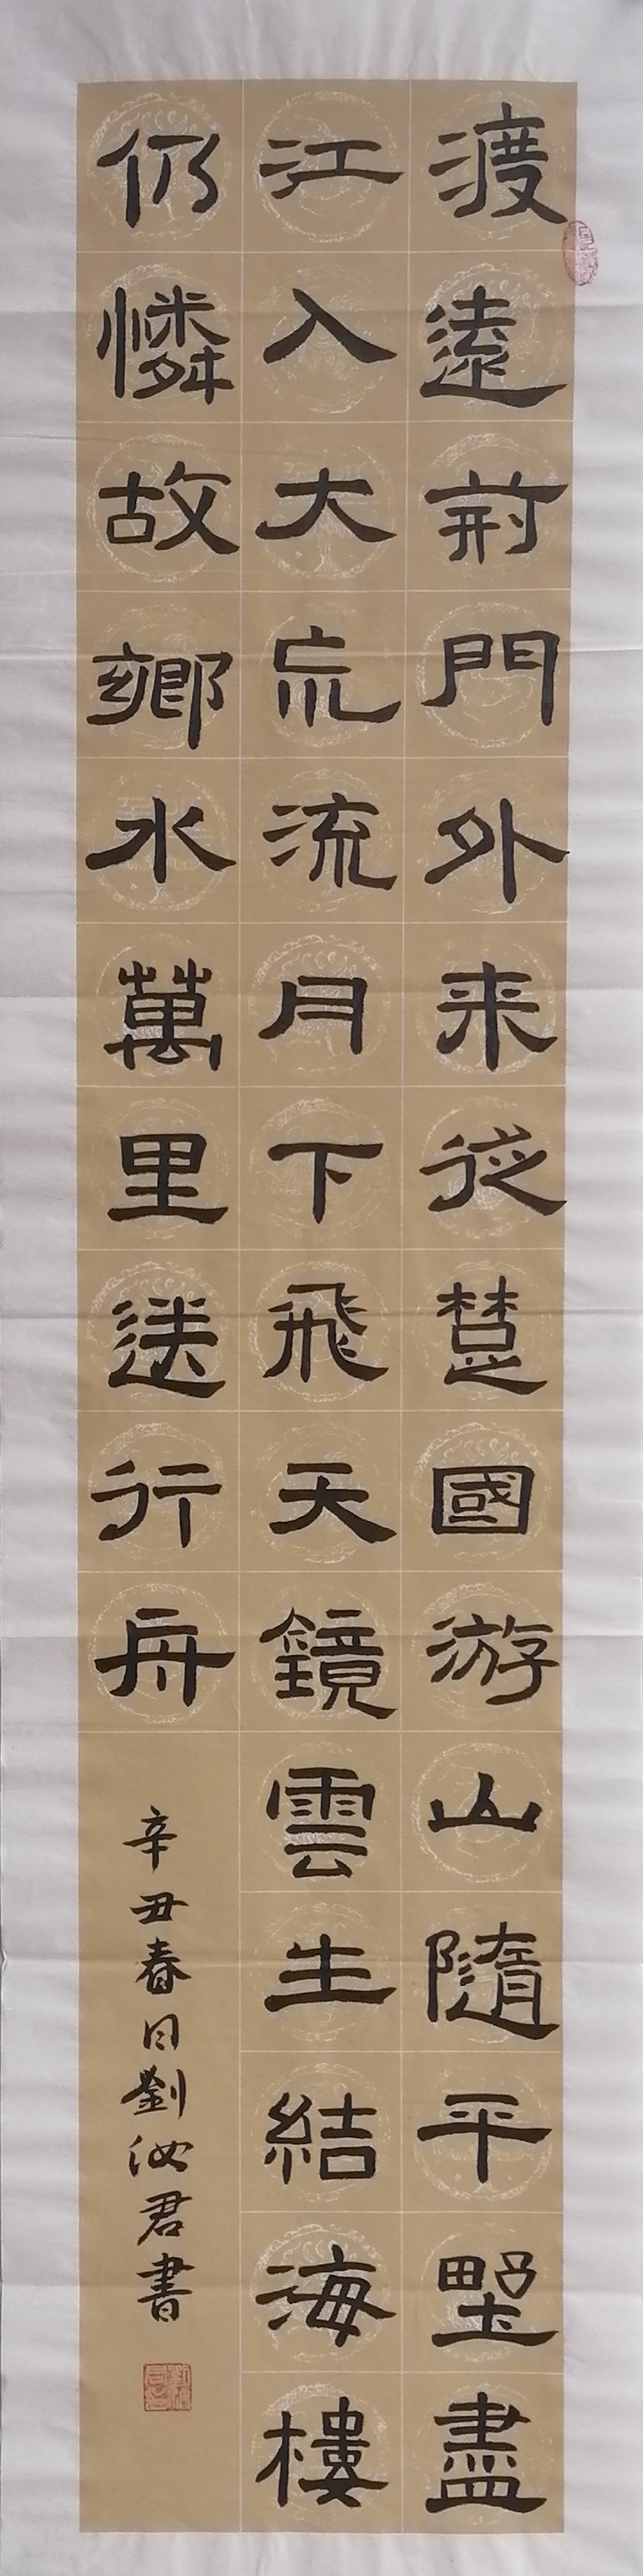 渡遠荊門外来從楚國游山隨平野盡
江入大荒流月下飛天鏡雲生結海樓
仍憐故鄉水萬里送行舟
辛丑春日劉汝君書